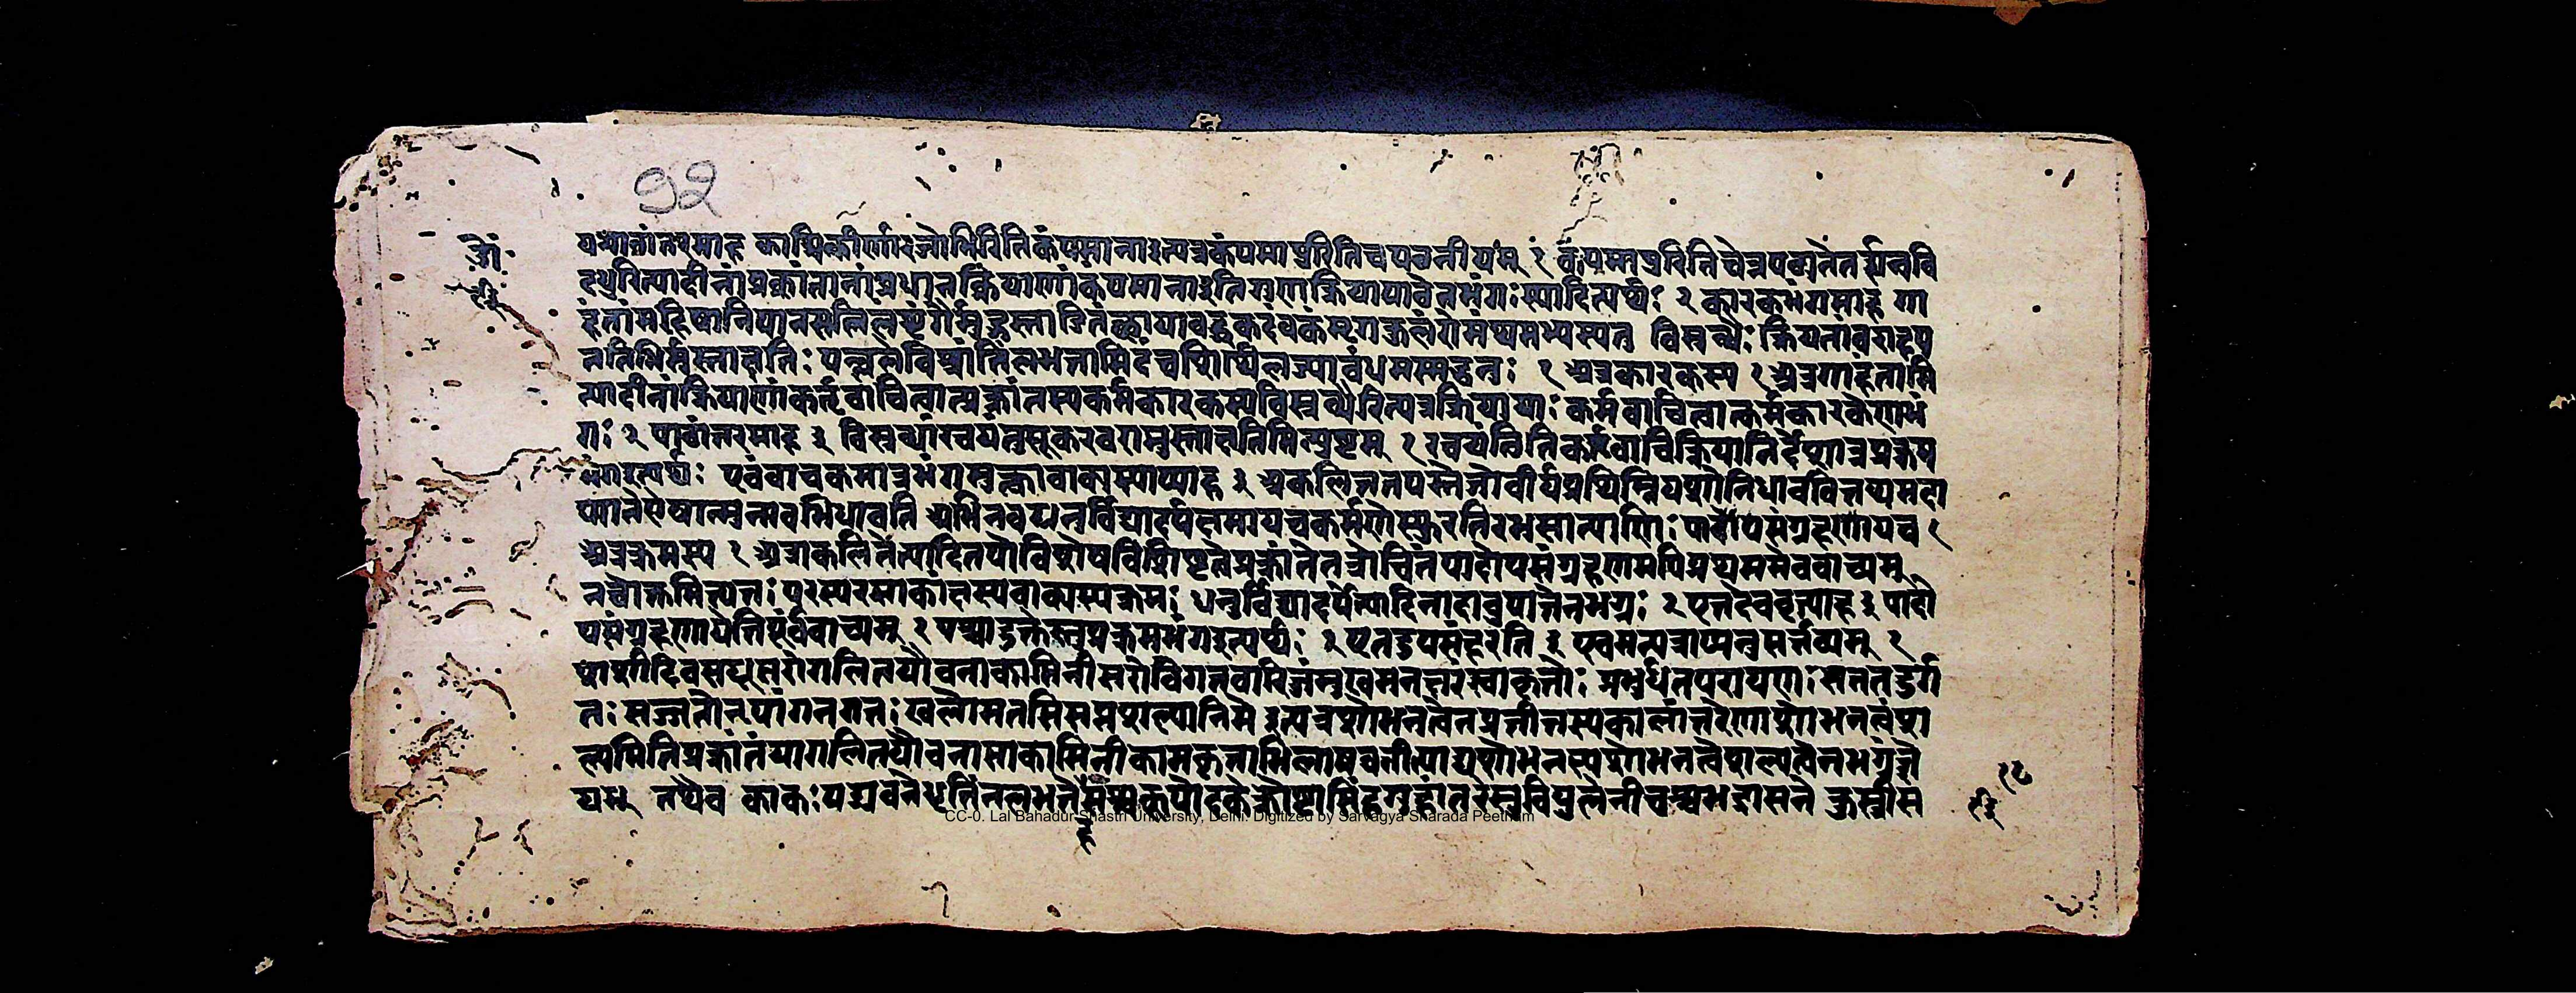 १२
पमापुरिति चेत्रपठ्यते तर्ह्यन्नवि
दधुरित्यादीनां प्रक्रांतानां प्रधानक्रियाणां कंपमाना इति गुणक्रियाया वेनभंगः स्यादित्यर्थः २ कारकभंगमाह गा
हंतां महिषा निपानसलिलं शृंगैर्मुहुस्ताडितं छायाबद्धकदंबकं मृगकुलं रोमंथमभ्यस्यतु विस्रब्धैः क्रियतां वराहप
ततिभिर्मुस्ताक्षतिः पल्वले विश्रांतिं लभतामिदं च शिथिलज्याबंधमस्मद्धनुः १ अत्र कारकस्य १ अत्र गाहंतामि
त्यादीनां क्रियाणां कर्तृवाचित्वात्प्रक्रांतस्य कर्मकारकस्य विस्रब्धैरित्यत्र क्रियायाः कर्मवाचित्वात्कर्मकारकेणाभं
गः २ पाठांतरमाह ३ विस्रब्धा रचयंतु सूकरवरा मुस्ताक्षतिमित्यदुष्टम् १ रचयंत्विति कर्तृवाचिक्रियानिर्देशान्न प्रक्रम
भंग इत्यर्थः एवं वाचकमात्रभंगमुक्त्वा वाक्यस्याप्याह ३ अकलिततपस्तेजोवीर्यप्रथिम्नि यशोनिधाववितथमदा
ध्माते रोषान्मुनावभिधावति अभिनवधनुर्विद्यादर्पक्षमाय च कर्मणे स्फुरति रभसात्पाणिः पादोपसंग्रहणाय च १
अत्र क्रमस्य १ अत्राकलितेत्यादितपोविशेषविशिष्टत्वे प्रक्रांते तत्रोचितं पादोपसंग्रहणमपि प्रथममेव वाच्यम्
तच्चोक्तमित्यतः परस्परसाकांक्षस्य वाक्यस्य क्रमः धनुर्विद्यादर्पेत्यादिनादावुपात्तेन भग्नः २ एतदेव वृत्त्याह ३ पादो
पसंग्रहणायेति पूर्वं वाच्यम् १ पश्चादुक्तेस्तु प्रक्रमभंग इत्यर्थः २ एतदुपसंहरति ३ एवमन्यत्राप्यनुसर्त्तव्यम् १
शशी दिवसधूसरो गलितयौवना कामिनी सरो विगतवारिजं मुखमनक्षरं स्वाकृतेः प्रभुर्धनपरायणः सततदुर्ग
तः सज्जनो नृपांगनगतः खलो मनसि सप्त शल्यानि मे इत्यत्र शोभनत्वेन प्रतीतस्य कालांतरेणाशोभनत्वं श
ल्यमिति प्रक्रांतं या गलितयौवना सा कामिनी कामकृताभिलाषवतीत्याद्यशोभनस्य शोभनत्वे शल्यत्वेन भग्नं ज्ञे
यम् तथैव काकः पद्मवने धृतिं न लभते हंसश्च कूपोदके क्रोष्टा सिंहगुहांतरे सुविपुले नीचश्च भद्रासने कुस्त्री स
CC-0. Lal Bahadur Shastri University, Delhi. Digitized by Sarvagya Sharada Peetham